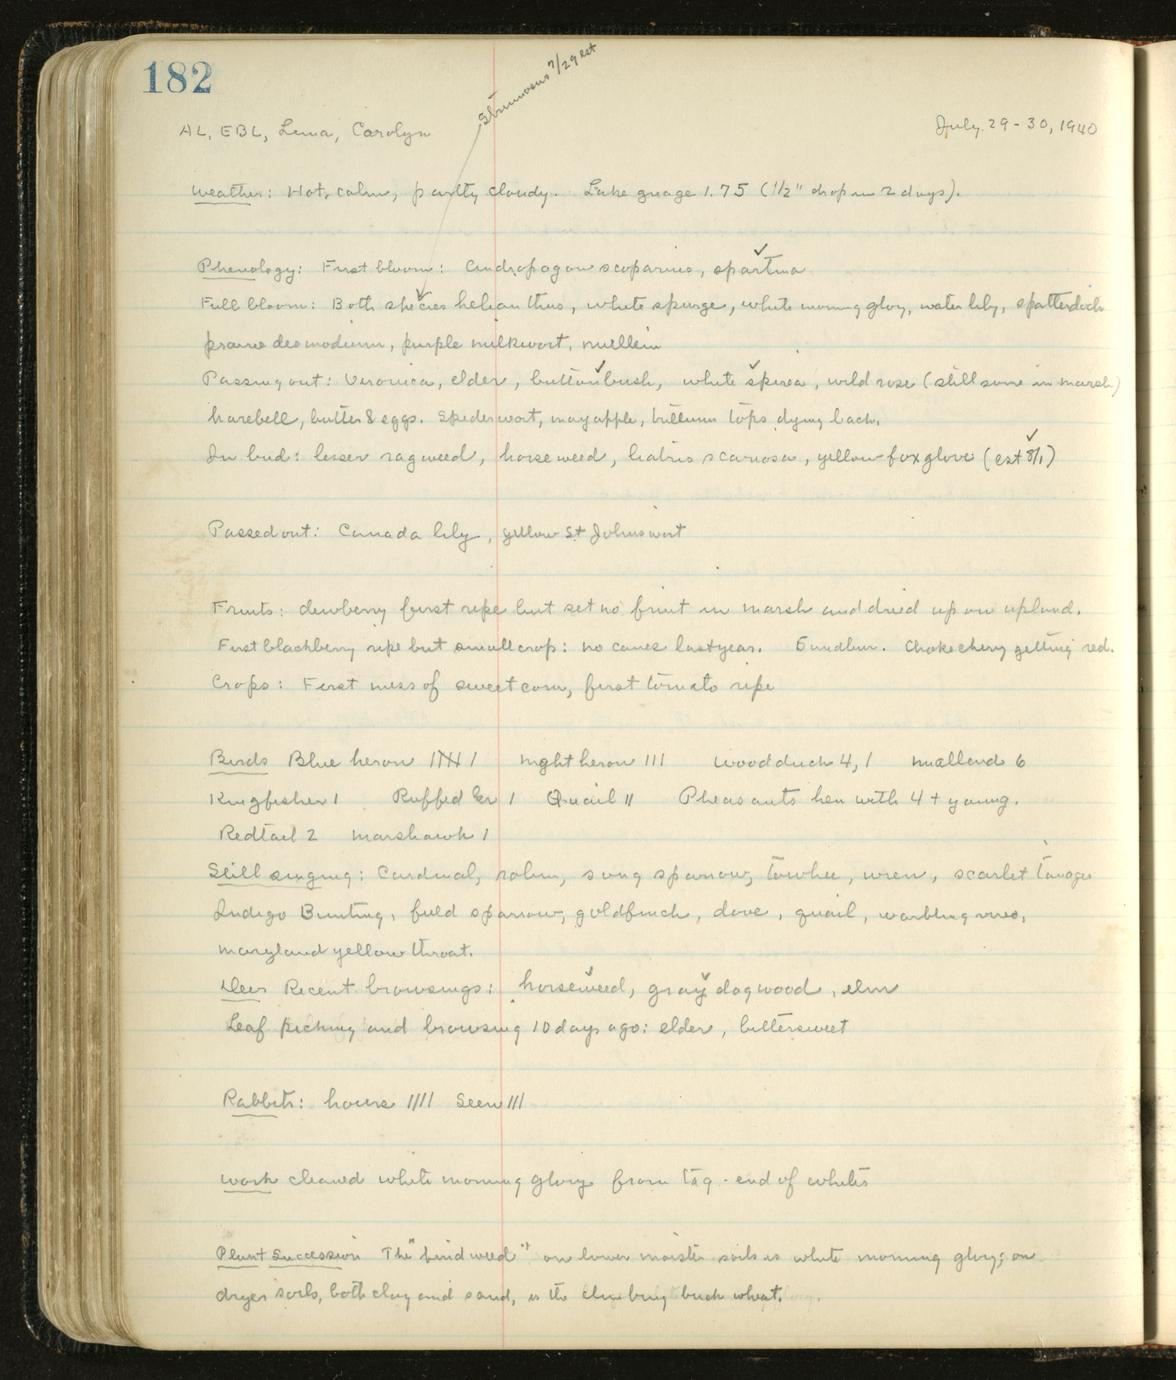 182
Strumosus 7/29 est
AL, EBL, Luna, Carolyn
July 29-30, 1940
Weather: Hot, calm, partly cloudy. Lake guage 1.75 (1/2" drop in 2 days).
Phenology: First bloom: Andropogon scoparius, spartina
Full bloom: Both species helianthus, white spurge, white morning glory, water lily, spatterdock
prairie desmodium, purple milkwort, mullein
Passing out: Veronica, elder, buttonbush, white spirea, wild rose (still some in marsh)
harebell, butter & eggs. Spiderwort, mayapple, trillium tops dying back.
In bud: lesser ragweed, horseweed, liatris scariosa, yellow foxglove (est 8/1)
Passed out: Canada lily, yellow St Johnswort
Fruits: dewberry first ripe but set no fruit in marsh and dried up on upland.
First blackberry ripe but small crop: no canes last year. Sandbur. Chokecherry getting red.
Crops: First mess of sweet corn, first tomato ripe
Birds Blue heron 1 NH 1 night heron 111 woodduck 4, 1 mallard 6
Kingfisher 1 Ruffed Gr 1 Quail 11 Pheasants hen with 4 + young.
Redtail 2 marshawk 1
Still singing: Cardinal, robin, song sparrow, towhee, wren, scarlet tanager
Indigo Bunting, field sparrow, goldfinch, dove, quail, warbling vireo,
maryland yellow throat.
Deer Recent browsings: horseweed, gray dogwood, elm
Leaf picking and browsing 10 days ago: elder, bittersweet
Rabbits: hours 1111 Seen 111
Work cleaned white morning glory from tag-end of whites
Plant Succession The "bindweed" on lower moister soils is white morning glory; on
dryer soils, both clay and sand, is the climbing buckwheat.